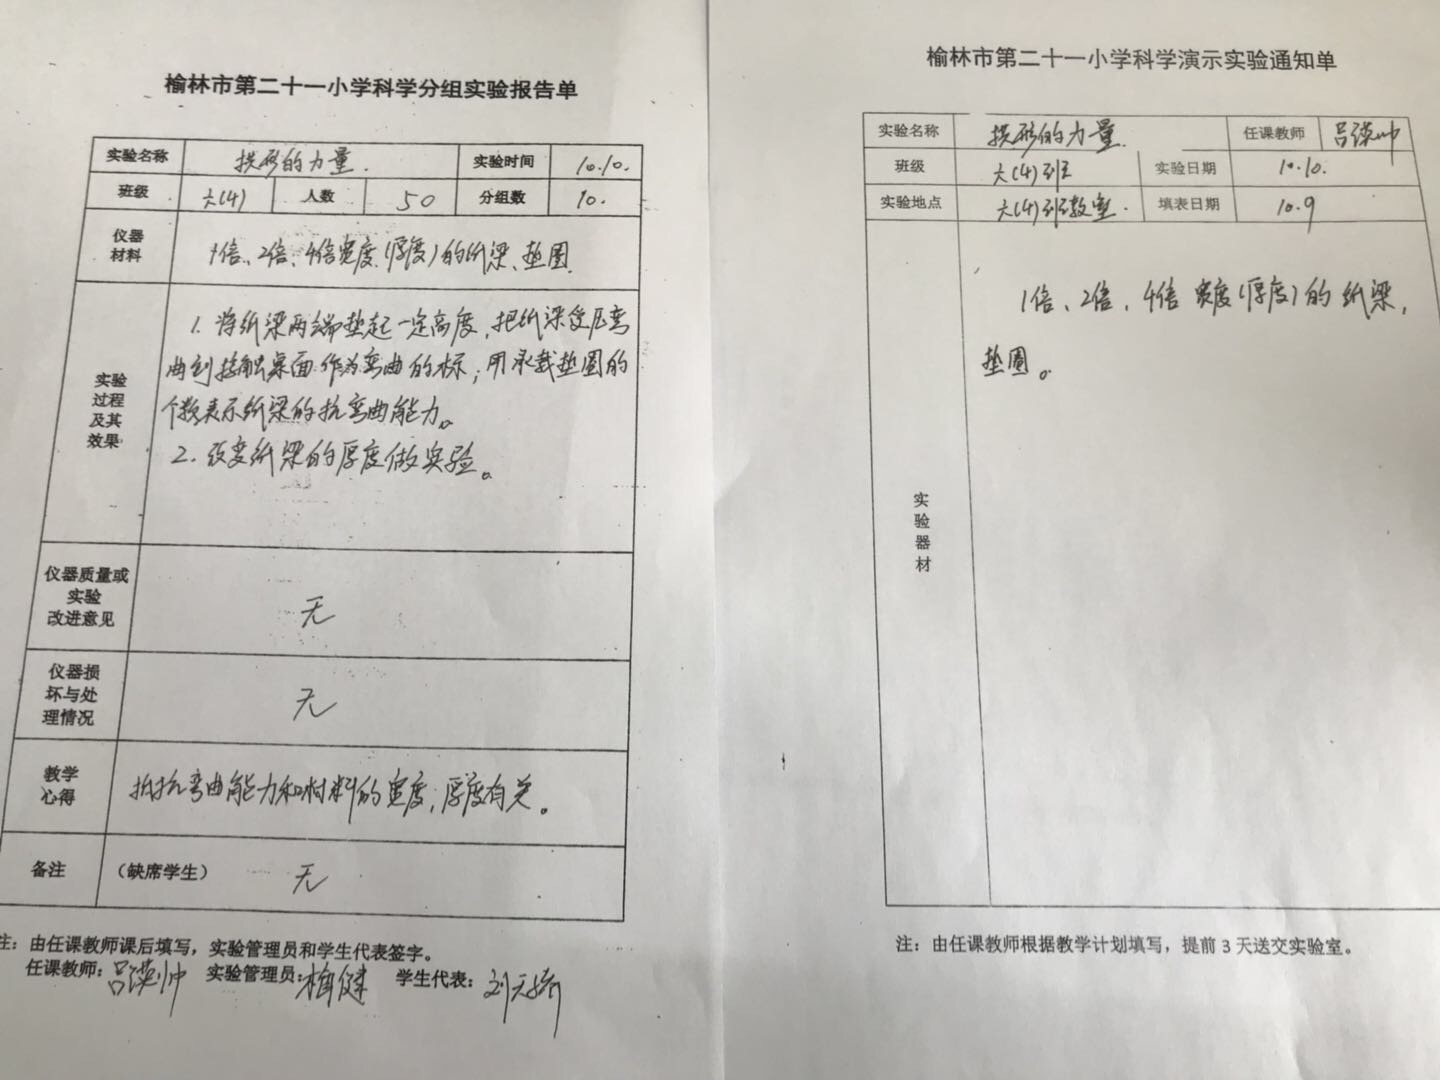 榆林市第二十一小学科学分组实验报告单
实验名称 拱形的力量. 实验时间 10.10.
班级 六(4) 人数 50 分组数 10.
仪器
材料
1倍、2倍、4倍宽度(厚度)的纸梁、垫圈
实验
过程
及其
效果
1. 将纸梁两端垫起一定高度,把纸梁受压弯
曲到接触桌面作为弯曲的标;用承载垫圈的
个数表示纸梁的抗弯曲能力。
2. 改变纸梁的厚度做实验。
仪器质量或
实验
改进意见
无
仪器损
坏与处
理情况
无
教学
心得
抵抗弯曲能力和材料的宽度,厚度有关。
备注 (缺席学生) 无
注:由任课教师课后填写,实验管理员和学生代表签字。
任课教师: 实验管理员: 学生代表:
榆林市第二十一小学科学演示实验通知单
实验名称 拱形的力量. 任课教师
班级 六(4)班 实验日期 10.10.
实验地点 六(4)班教室. 填表日期 10.9
实
验
器
材
1倍、2倍、4倍宽度(厚度)的纸梁,
垫圈。
注:由任课教师根据教学计划填写,提前 3 天送交实验室。